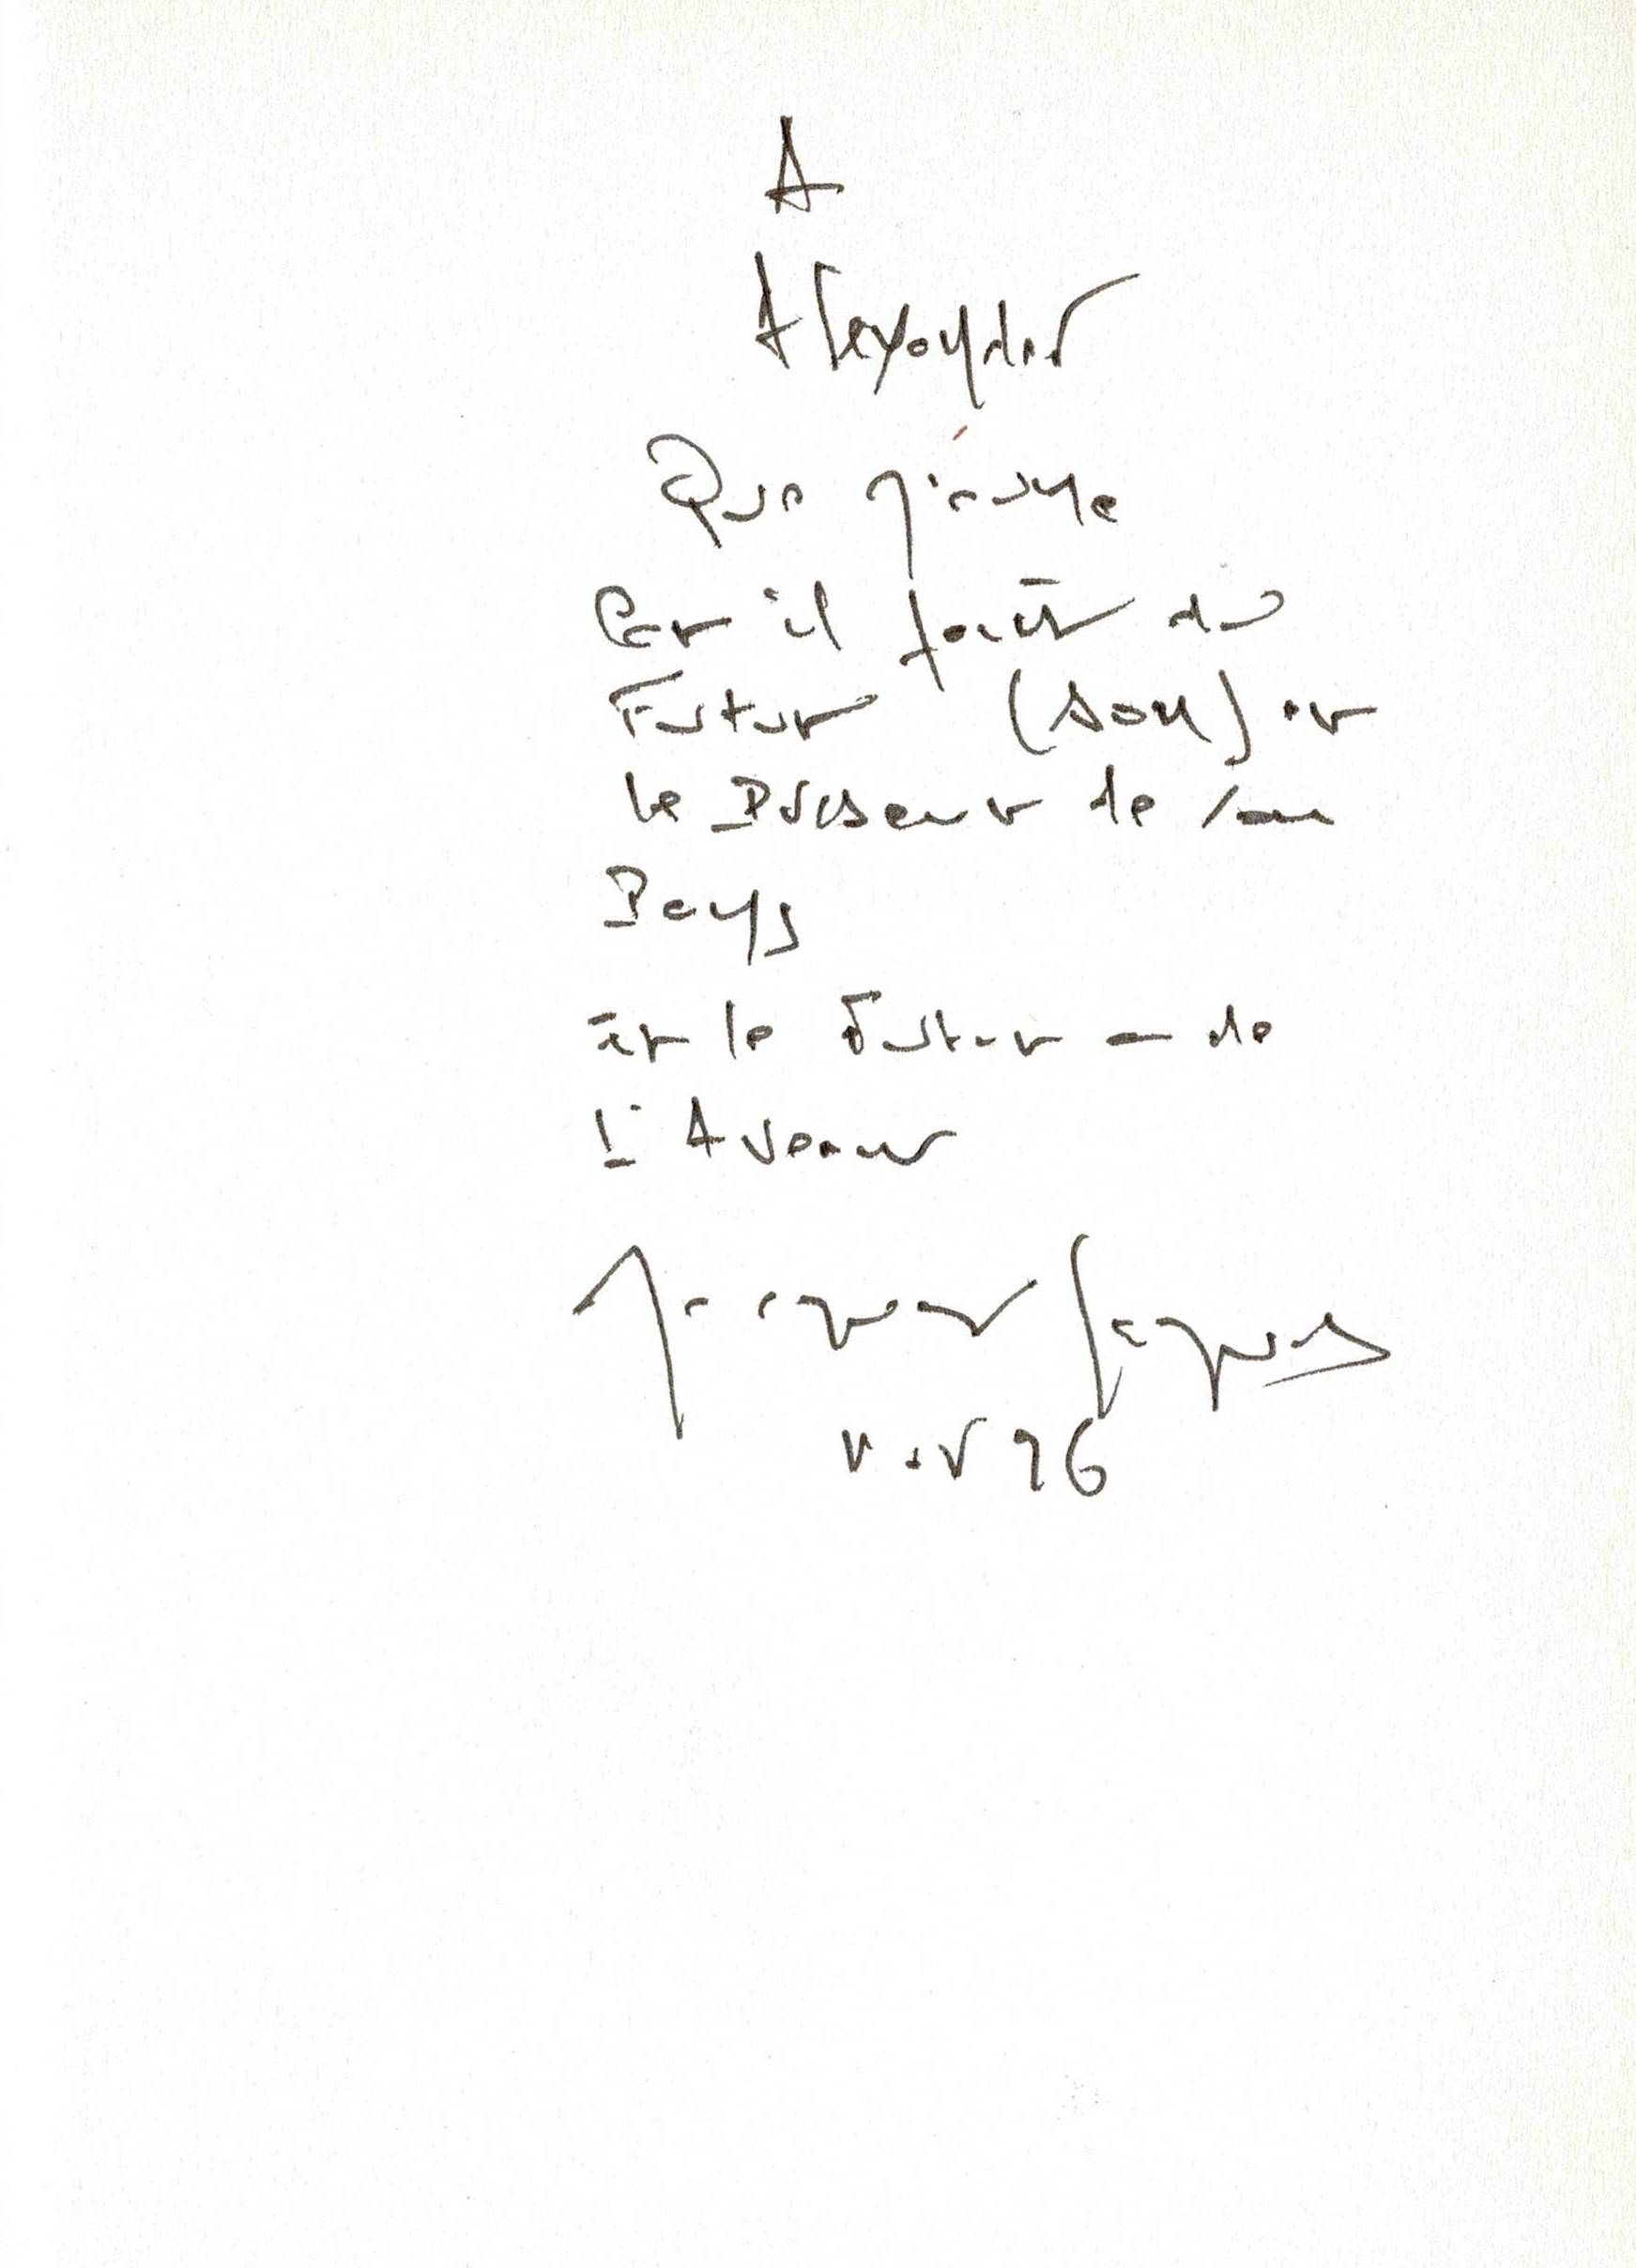 A
Alexandre
Que j'aime
Car il fait du
Futur (son) et
le Présent de son
Pays
et le Futur – de
l'Avenir
nov 96